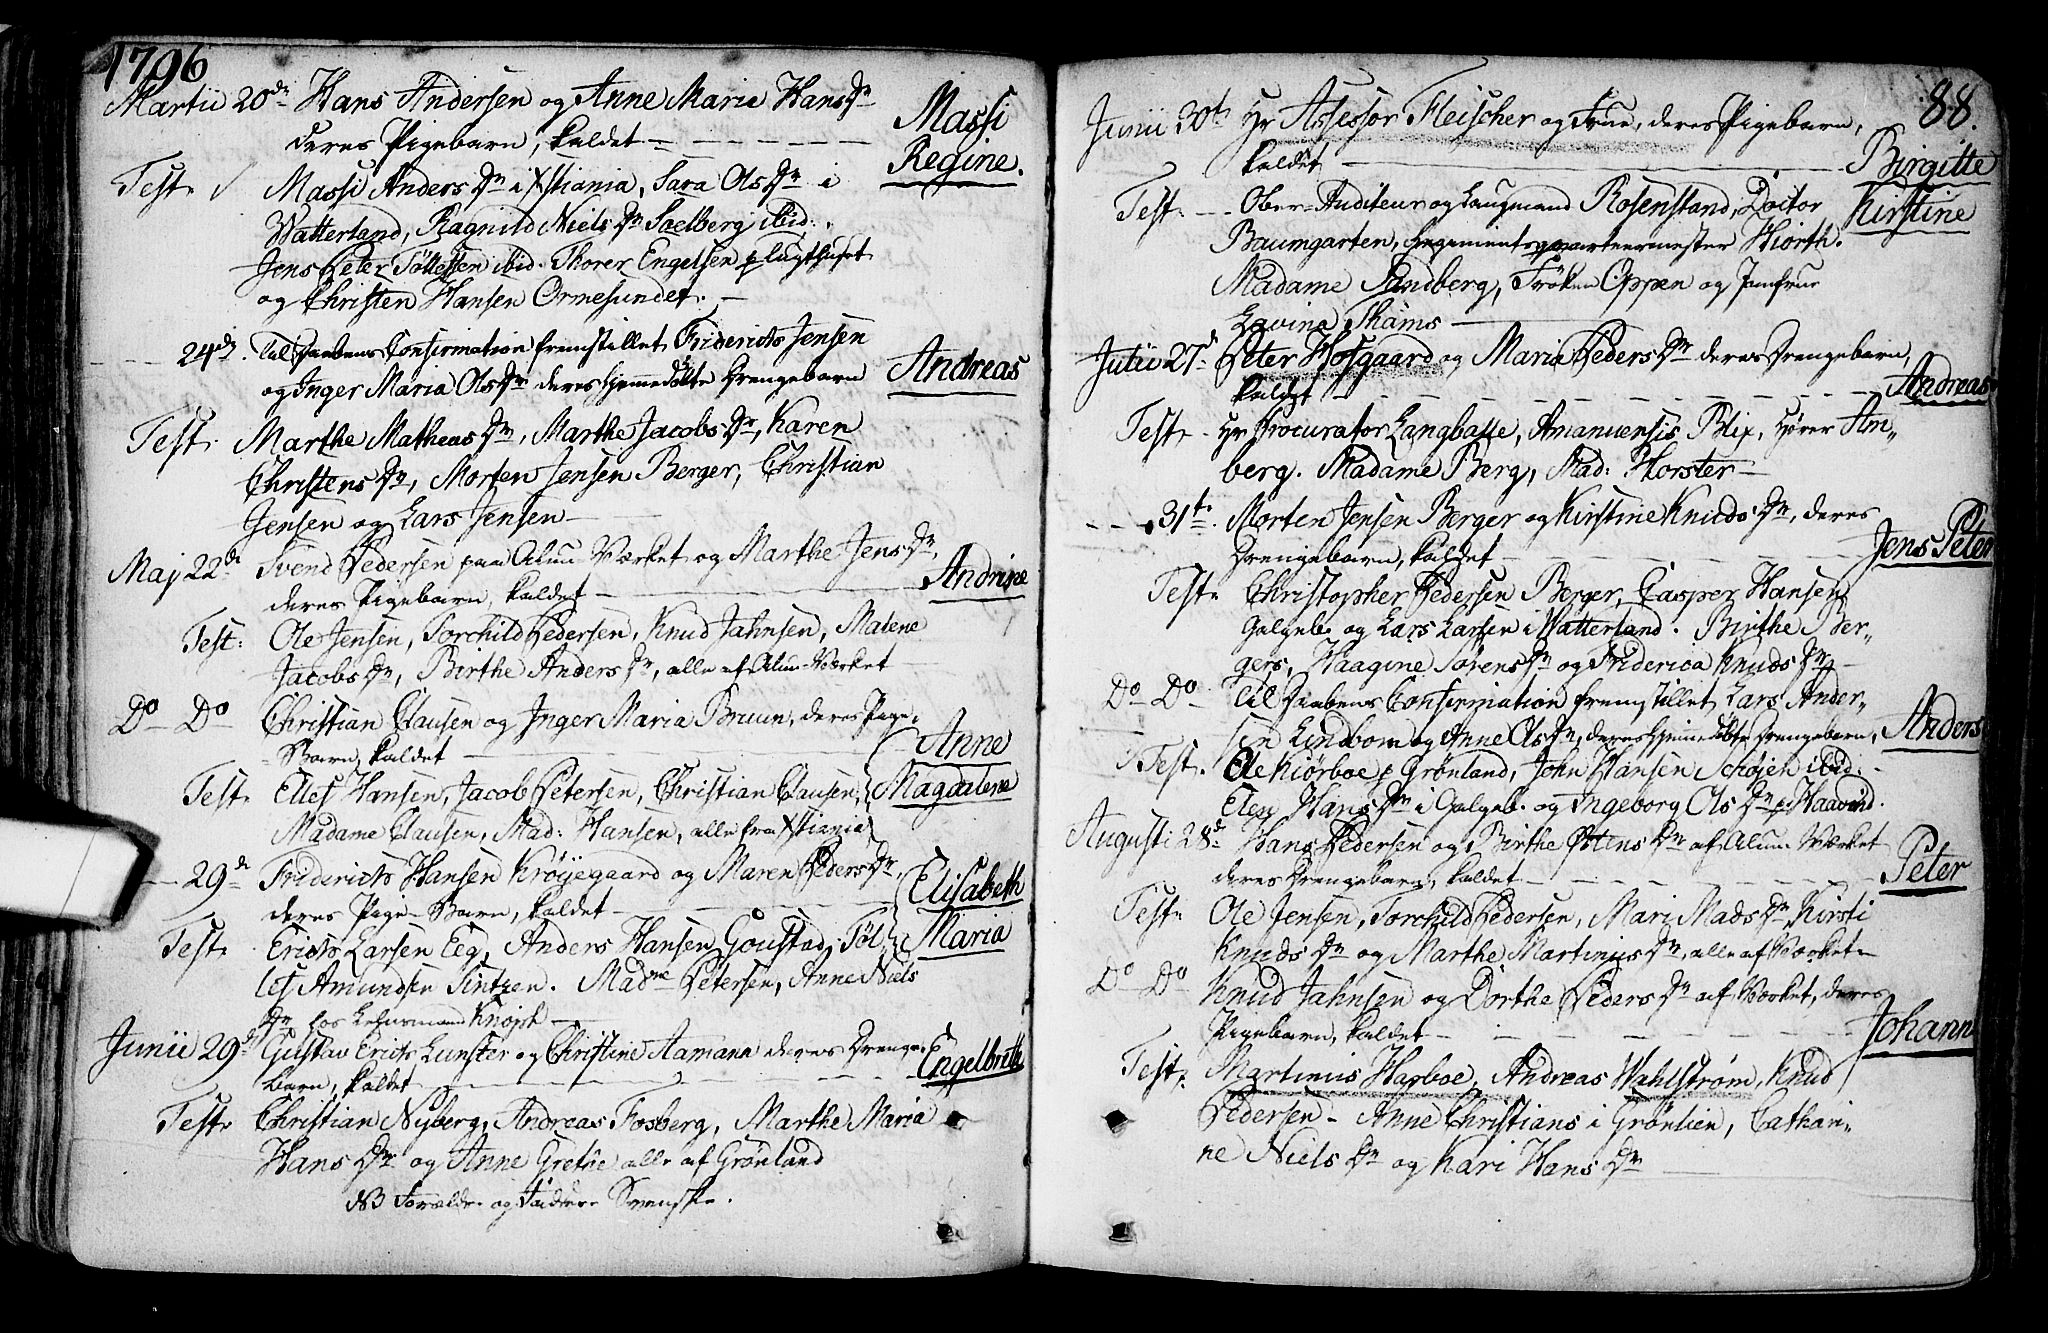 1796
Martii 20de Hans Andersen og Anne Maria Hans Dr
deres Pigebarn, kaldet Massi
Regine.
Test. Massi Anders Dr i Xstiania, Sara Ols Dr i
Watterland, Ragnild Niels Dr Soelberg ibid.
Jens Peter Töllefsen ibid. Thorer Engelsen p Tugthuset
og Christen Hansen Ormesundet.
24de. Til Daabens Confirmation fremstillet Friderich Jensen
og Inger Maria Ols Dr deres hjemmedöbte Drengebarn Andreas
Test. Marthe Matheas Dr, Marthe Jacobs Dr, Karen
Christens Dr, Morten Jensen Berger, Christian
Jensen og Lars Jensen
Maj 22de Svend Pedersen paa Alun-Værket og Marthe Jens Dr,
deres Pigebarn, kaldet Andrine
Test: Ole Jensen, Torchild Pedersen, Knud Jahnsen, Malene
Jacobs Dr, Birthe Anders Dr, alle af Alun-Værket
Do Do Christian Clausen og Inger Maria Bruun, deres Pige-
Barn, kaldet Anne
Test. Elles Hansen, Jacob Petersen, Christian Clausen, Magdalena
Madame Clausen, Mad: Hansen, alle fra Xstiania
29de Friderich Hansen Kröyegaard og Maren Peders Dr,
deres Pige-Barn, kaldet Elisabeth
Test. Erich Larsen Eeg, Anders Hansen Goustad, Töl- Maria
les Amundsen Sintzen. Madme Petersen, Anne Niels
Dr hos Lehnsmand Knoph
Junii 29de Gustav Erich Lunster og Christine Aamann deres Drenge-
barn, kaldet Engelbreth
Test. Christian Nyberg, Andreas Fosberg, Marthe Maria
Hans Dr og Anne Grethe alle af Grönland
NB Forældre og Faddere Svenske.
88.
Junii 30te Hr Assessor Fleischer og Frue, deres Pigebarn,
kaldet Birgitte
Test. Ober-Auditeur og Laugmand Rosenstand, Doctor Kirstine
Baumgarten, Regimentsqvarteermester Hiorth.
Madame Sandberg, Fröken Oppen og Jomfrue
Lovina Thams
Julii 27de Peter Hofgaard og Maria Peders Dr deres Drengebarn,
kaldet Andreas
Test. Hr Procurator Langballe, Amanuensis Blix, Hörer Am-
berg. Madame Berg, Mad: Horster
31te. Morten Jensen Berger og Kirstine Knuds Dr, deres
Drengebarn, kaldet Jens Peter
Test. Christopher Pedersen Berger, Casper Hansen
Galgeb. og Lars Larsen i Watterland. Birthe Ber-
gers, Haagine Sörens Dr og Friderica Knuds Dr
Do Do Til Daabens Confirmation fremstillet Lars Ander-
sen Lindbom og Anne Ols Dr, deres hjemmedöbte Drengebarn, Anders
Test. Ole Kiörboe p Grönland, John Hansen Schöjen ibid.
Elen Hans Dr i Galgeb. og Ingeborg Ols Dr p Haavind.
Augusti 28de Hans Pedersen og Birthe Östens Dr af Alun-Værket
deres Drengebarn, kaldet Peter
Test. Ole Jensen, Torchild Pedersen, Mari Mads Dr, Kirsti
Knuds Dr og Marthe Martinus Dr, alle af Værket
Do Do Knud Jahnsen og Dorthe Peders Dr af Værket, deres
Pigebarn, kaldet Johann
Test. Martinus Harboe, Andreas Wahlström, Knud
Pedersen - Anne Christians i Grönlien, Cathari-
ne Niels Dr og Kari Hans Dr